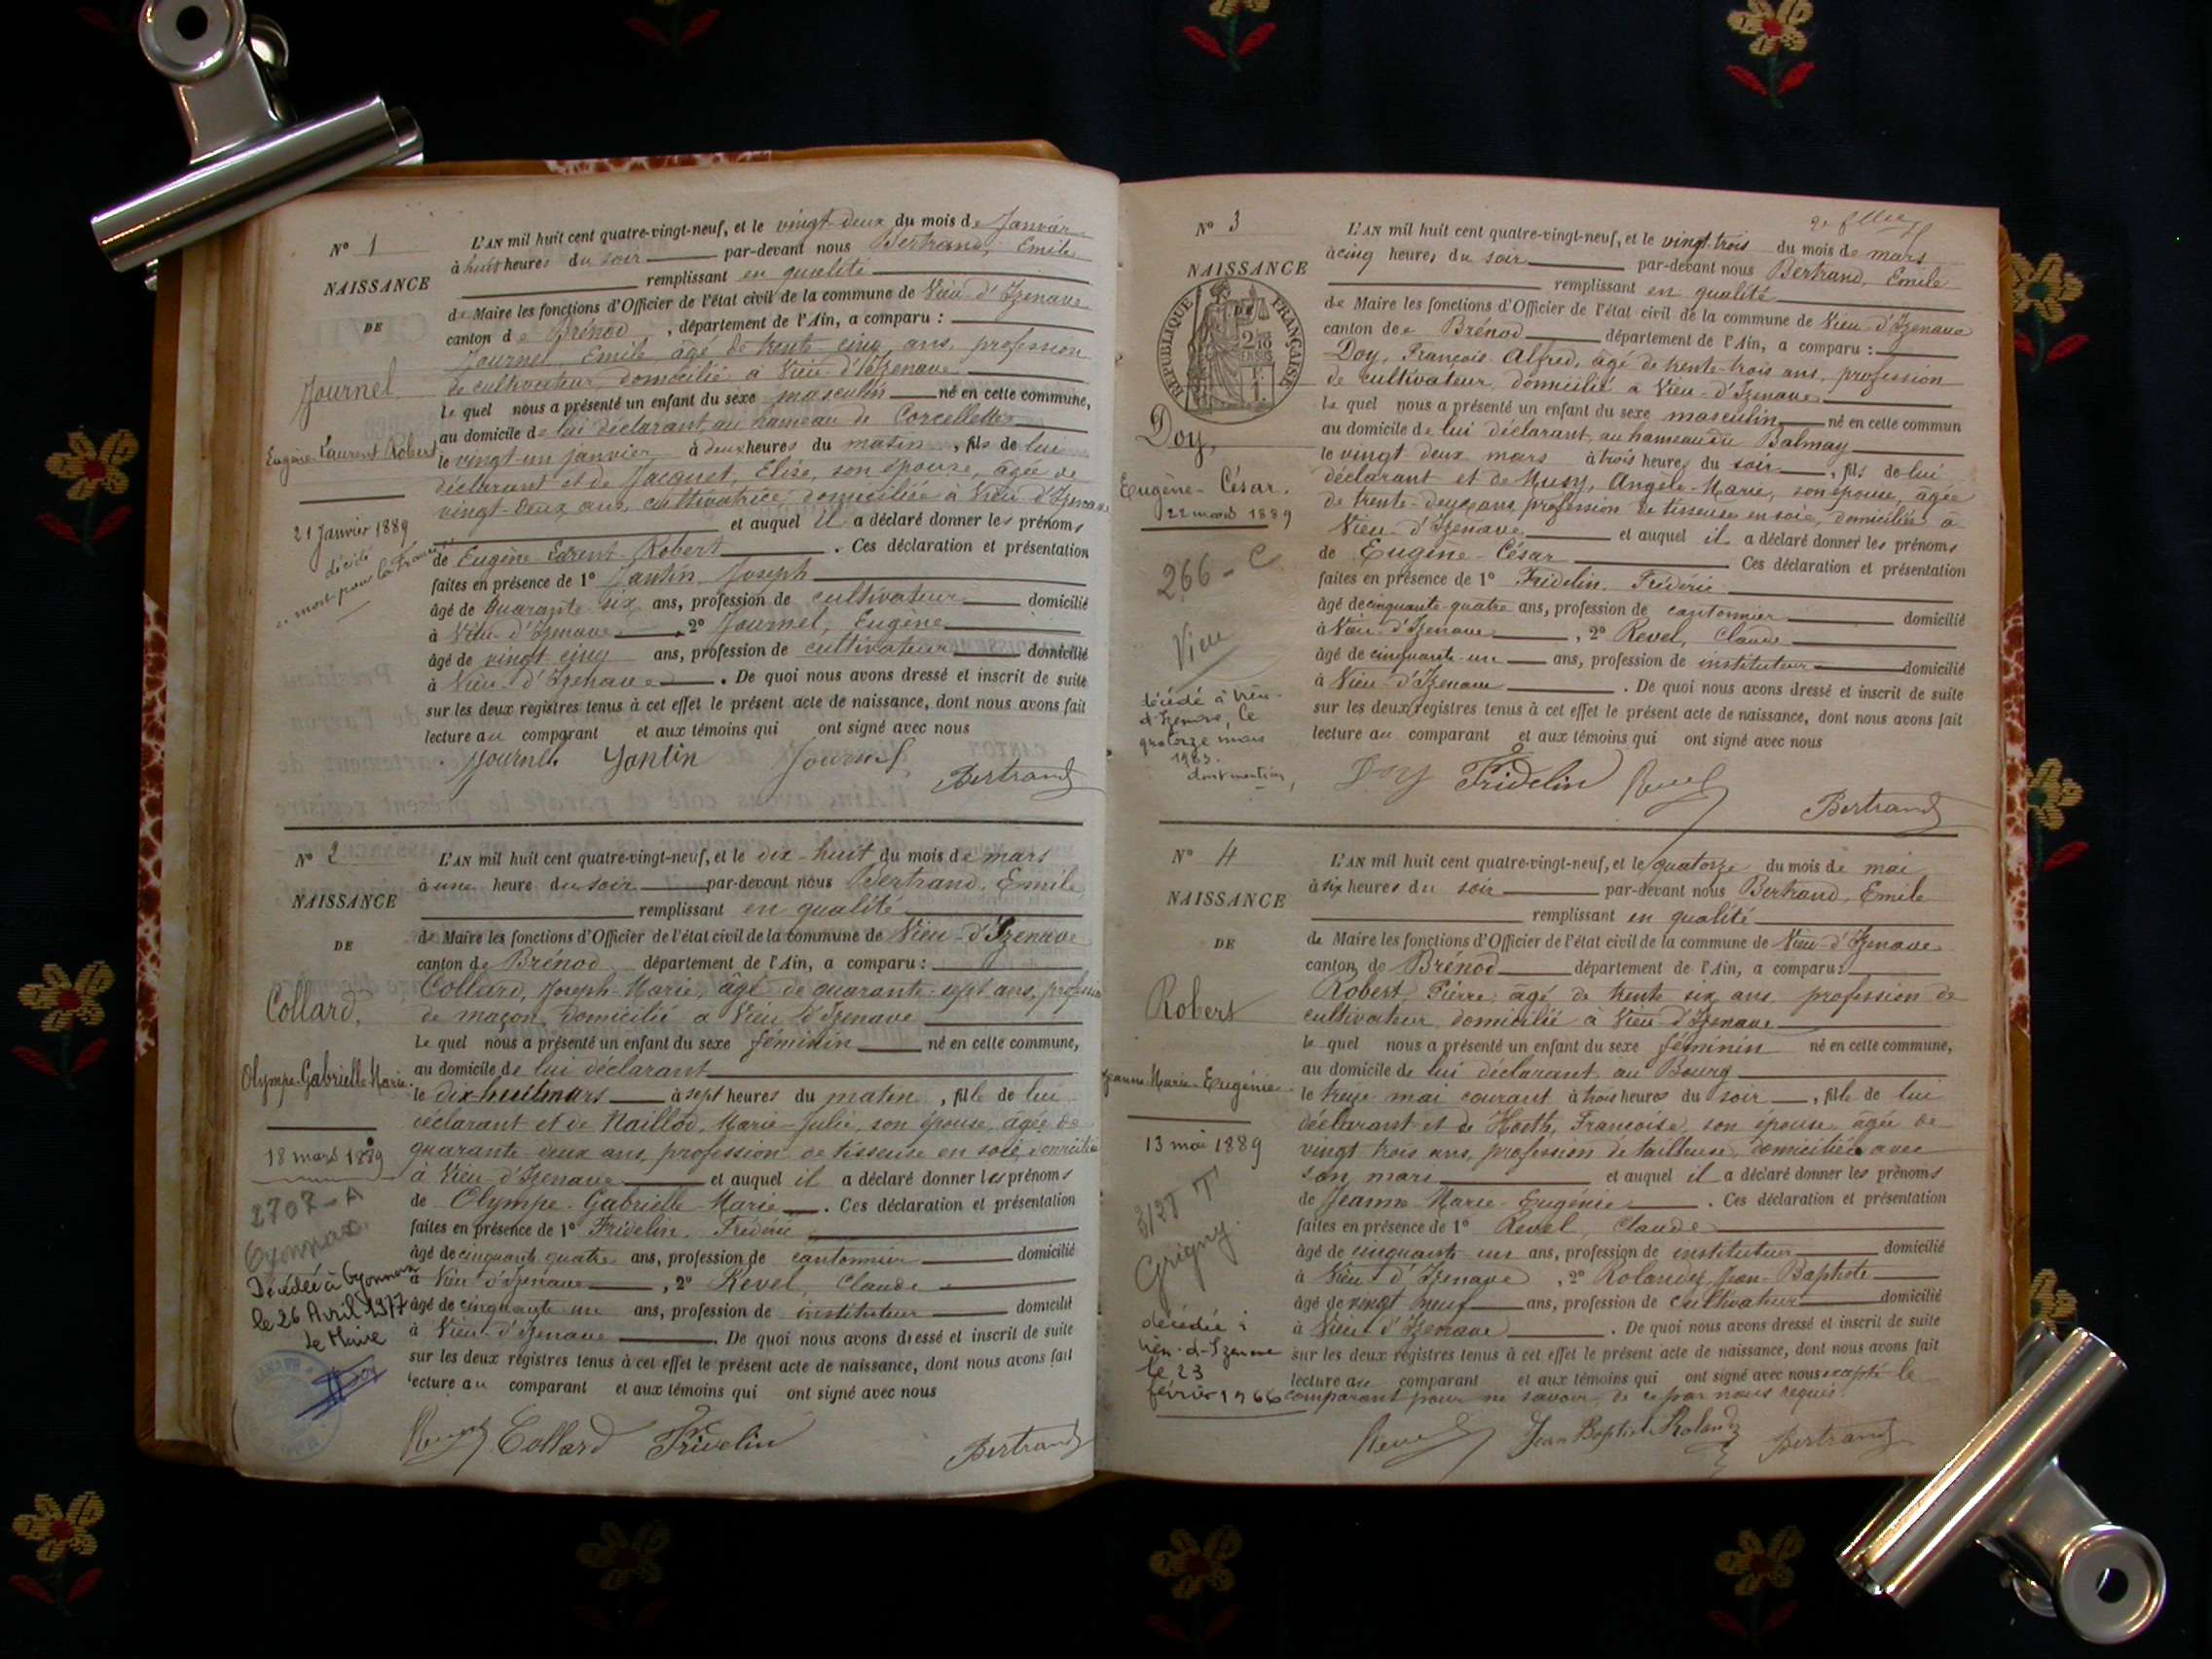 N° 1
NAISSANCE
DE
Journel
Eugène Laurent Robert
21 Janvier 1889
décédé
mort pour la France
L'AN mil huit cent quatre-vingt-neuf, et le vingt-deux du mois de Janvier
à huit heures du soir par-devant nous Bertrand, Emile
remplissant en qualité
de Maire les fonctions d'Officier de l'état civil de la commune de Vieu-d'Izenave
canton de Brénod, département de l'Ain, a comparu :
Journel Emile âgé de trente cinq ans, profession
de cultivateur, domicilié à Vieu-d'Izenave
Le quel nous a présenté un enfant du sexe masculin né en cette commune,
au domicile de lui déclarant au hameau de Corcelettes
le vingt-un janvier à deux heures du matin, fils de lui
déclarant et de Jacquet, Elise, son épouse, âgée de
vingt-deux ans, cultivatrice domiciliée à Vieu-d'Izenave
et auquel il a déclaré donner les prénoms
de Eugène Laurent-Robert. Ces déclaration et présentation
faites en présence de 1° Jantin Joseph
âgé de quarante six ans, profession de cultivateur domicilié
à Vieu-d'Izenave, 2° Journel, Eugène
âgé de vingt cinq ans, profession de cultivateur domicilié
à Vieu-d'Izenave. De quoi nous avons dressé et inscrit de suite
sur les deux registres tenus à cet effet le présent acte de naissance, dont nous avons fait
lecture au comparant et aux témoins qui ont signé avec nous
Journel Jantin Journel Bertrand
N° 2
NAISSANCE
DE
Collard,
Olympe-Gabrielle-Marie.
18 mars 1889
2707-A
Oyonnax
Décédée à Oyonnax
le 26 Avril 1977
Le Maire
L'AN mil huit cent quatre-vingt-neuf, et le dix-huit du mois de mars
à une heure du soir par-devant nous Bertrand, Emile
remplissant en qualité
de Maire les fonctions d'Officier de l'état civil de la commune de Vieu-d'Izenave
canton de Brénod département de l'Ain, a comparu :
Collard, Joseph-Marie, âgé de quarante-sept ans, profession
de maçon, domicilié à Vieu d'Izenave
Le quel nous a présenté un enfant du sexe féminin né en cette commune,
au domicile de lui déclarant
le dix-huit mars à sept heures du matin, fille de lui
déclarant et de Maillod, Marie-Julie, son épouse, âgée de
quarante deux ans, profession de tisseuse en soie, domiciliée
à Vieu-d'Izenave et auquel il a déclaré donner les prénoms
de Olympe-Gabrielle-Marie. Ces déclaration et présentation
faites en présence de 1° Fridelin, Frédéric
âgé de cinquante quatre ans, profession de cantonnier domicilié
à Vieu d'Izenave, 2° Revel, Claude
âgé de cinquante un ans, profession de instituteur domicilié
à Vieu-d'Izenave. De quoi nous avons dressé et inscrit de suite
sur les deux registres tenus à cet effet le présent acte de naissance, dont nous avons fait
lecture au comparant et aux témoins qui ont signé avec nous
Revel Collard Fridelin Bertrand
2e
N° 3
NAISSANCE
RÉPUBLIQUE FRANÇAISE
DE
Doy,
Eugène-César.
22 mars 1889
266-C
Vieu
décédé à Vieu-
d'Izenave, le
quatorze mars
1963.
dont mention,
L'AN mil huit cent quatre-vingt-neuf, et le vingt-trois du mois de mars
à cinq heures du soir par-devant nous Bertrand, Emile
remplissant en qualité
de Maire les fonctions d'Officier de l'état civil de la commune de Vieu-d'Izenave
canton de Brénod département de l'Ain, a comparu :
Doy, François-Alfred, âgé de trente-trois ans, profession
de cultivateur, domicilié à Vieu-d'Izenave
Le quel nous a présenté un enfant du sexe masculin né en cette commun
au domicile de lui déclarant, au hameau du Balmay
le vingt deux mars à trois heures du soir, fils de lui
déclarant et de Musy, Angèle-Marie, son épouse, âgée
de trente-deux ans, profession de tisseuse en soie, domiciliée à
Vieu-d'Izenave et auquel il a déclaré donner les prénoms
de Eugène-César Ces déclaration et présentation
faites en présence de 1° Fridelin, Frédéric
âgé de cinquante-quatre ans, profession de cantonnier domicilié
à Vieu-d'Izenave, 2° Revel, Claude
âgé de cinquante-un ans, profession de instituteur domicilié
à Vieu-d'Izenave. De quoi nous avons dressé et inscrit de suite
sur les deux registres tenus à cet effet le présent acte de naissance, dont nous avons fait
lecture au comparant et aux témoins qui ont signé avec nous
Doy Fridelin Revel Bertrand
N° 4
NAISSANCE
DE
Robert
Jeanne-Marie-Eugénie.
13 mai 1889
Grigny.
décédée à
Vieu-d-Izenave
le 23
février 1966
L'AN mil huit cent quatre-vingt-neuf, et le quatorze du mois de mai
à six heures du soir par-devant nous Bertrand, Emile
remplissant en qualité
de Maire les fonctions d'Officier de l'état civil de la commune de Vieu-d'Izenave
canton de Brénod département de l'Ain, a comparu :
Robert, Pierre, âgé de trente six ans, profession de
cultivateur, domicilié à Vieu-d'Izenave
le quel nous a présenté un enfant du sexe féminin né en cette commune,
au domicile de lui déclarant, au Bourg
le treize mai courant à trois heures du soir, fille de lui
déclarant et de Françoise, son épouse âgée de
vingt trois ans, profession de tailleuse, domiciliée avec
son mari et auquel il a déclaré donner les prénoms
de Jeanne-Marie-Eugénie. Ces déclaration et présentation
faites en présence de 1° Revel, Claude
âgé de cinquante-un ans, profession de instituteur domicilié
à Vieu-d'Izenave, 2° Rolandez Jean-Baptiste
âgé de vingt neuf ans, profession de cultivateur domicilié
à Vieu-d'Izenave. De quoi nous avons dressé et inscrit de suite
sur les deux registres tenus à cet effet le présent acte de naissance, dont nous avons fait
lecture au comparant et aux témoins qui ont signé avec nous excepté le
comparant pour ne savoir, de ce par nous requis.
Revel Jean Baptiste Rolandez Bertrand